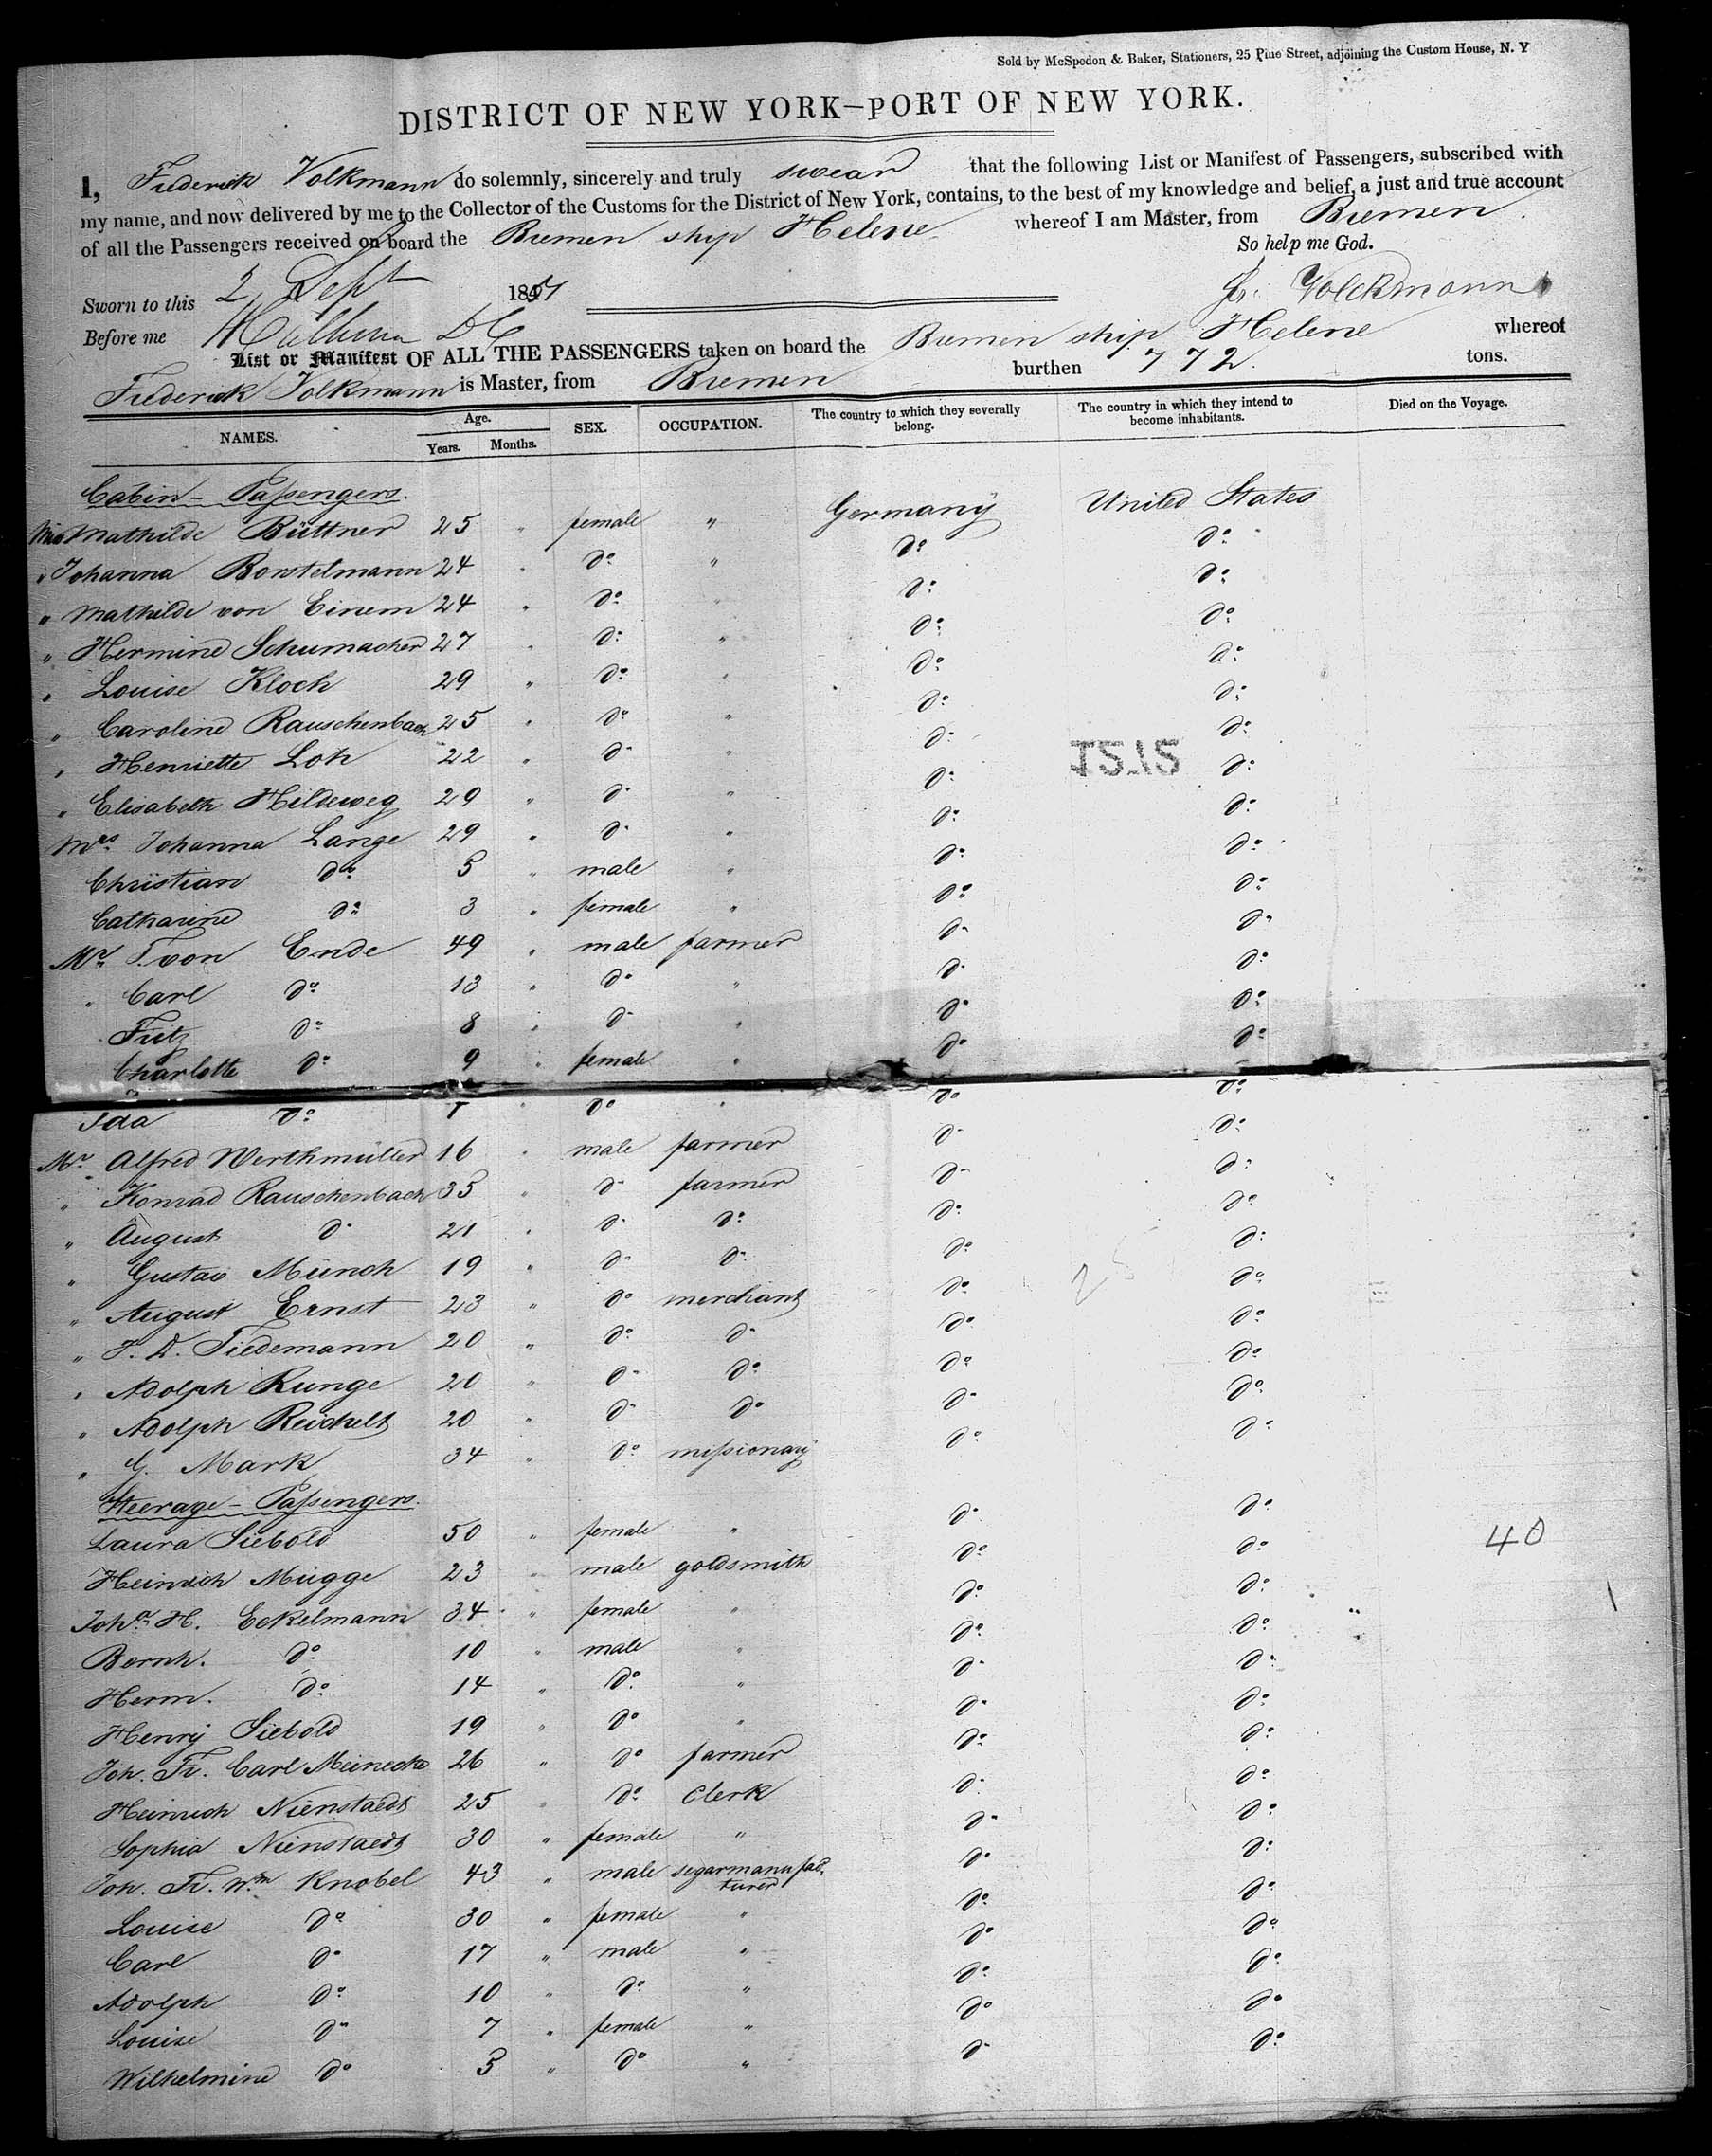 Sold by McSpedon & Baker, Stationers, 25 Pine Street, adjoining the Custom House, N. Y
DISTRICT OF NEW YORK—PORT OF NEW YORK.
I, Frederick Volkmann do solemnly, sincerely and truly swear that the following List or Manifest of Passengers, subscribed with
my name, and now delivered by me to the Collector of the Customs for the District of New York, contains, to the best of my knowledge and belief, a just and true account
of all the Passengers received on board the Bremen ship Helene whereof I am Master, from Bremen.
So help me God.
Sworn to this 2 Sept 1851 F. Volckmann
Before me
List or Manifest OF ALL THE PASSENGERS taken on board the Bremen ship Helene whereof
Frederick Volkmann is Master, from Bremen burthen 772. tons.
NAMES. Age. Years. Months. SEX. OCCUPATION. The country to which they severally belong. The country in which they intend to become inhabitants. Died on the Voyage.
Cabin - Passengers.
Miss Mathilde Büttner 25 " female " Germany United States
" Johanna Borstelmann 24 " do " do do
" Mathilde von Einem 24 " do " do do
" Hermine Schumacher 27 " do " do do
" Louise Kloch 29 " do " do do
" Caroline Rauschenbach 25 " do " do do
" Henriette Loh 22 " do " do do
" Elisabeth Hildeweg 29 " do " do do
Mrs Johanna Lange 29 " do " do do
Christian do 5 " male " do do
Catharine do 3 " female " do do
Mr T. von Ende 49 " male farmer do do
" Carl do 13 " do " do do
Fritz do 8 " do " do do
Charlotte do 9 " female " do do
Ida do " do " do do
Mr Alfred Werthmüller 16 " male farmer do do
" Konrad Rauschenbach 35 " do farmer do do
" August do 21 " do do do do
" Gustav Münch 19 " do do do do
25
" August Ernst 23 " do merchant do do
" T. D. Tiedemann 20 " do do do do
" Adolph Runge 20 " do do do do
" Adolph Reichelt 20 " do do do do
" G. Mark 34 " do missionary do do
Steerage - Passengers.
Laura Siebold 50 " female " do do
40
Heinrich Mügge 23 " male goldsmith do do
Joha H. Eckelmann 34 " female " do do
Bernh. do 10 " male " do do
Herm. do 14 " do " do do
Henry Siebold 19 " do " do do
Joh. Fr. Carl Meinecke 26 " do farmer do do
Heinrich Nienstaedt 25 " do Clerk do do
Sophia Nienstaedt 30 " female " do do
Joh. Fr. Wm Knobel 43 " male segarmanufacturer do do
Louise do 30 " female " do do
Carl do 17 " male " do do
Adolph do 10 " do " do do
Louise do 7 " female " do do
Wilhelmine do 5 " do " do do